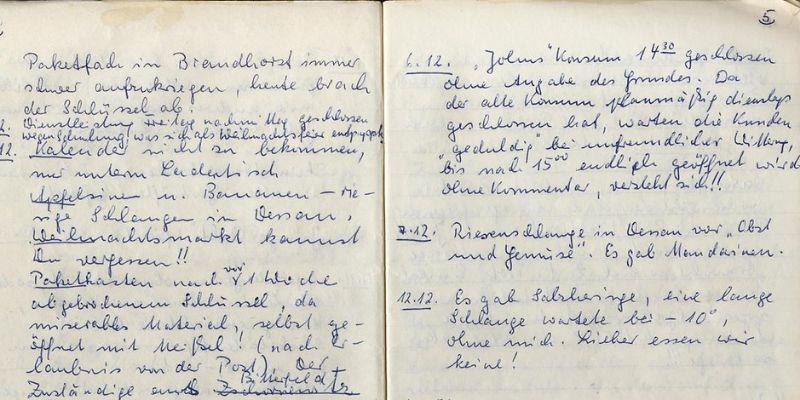 Paketfach in Brandhorst immer
schwer aufzukriegen, heute brach
der Schlüssel ab.
2. Dienstleistung Freitag nachmittag geschlossen
wegen Schulung, was sich als Weihnachtsfeier entpuppte
12. Kalender nicht zu bekommen,
nur unterm Ladentisch
Apfelsinen u. Bananen – rie-
sige Schlangen in Dessau.
Weihnachtsmarkt kannst
Du vergessen!!
Paketkasten nach vor 1 Woche
abgebrochenem Schlüssel, da
miserables Material, selbst ge-
öffnet mit Meißel! (nach Er-
laubnis von der Post). Der
Bitterfeld
Zuständige aus
5
6.12. "Johns" Konsum 14 30 geschlossen
ohne Angabe des Grundes. Da
der alte Konsum planmäßig dienstags
geschlossen hat, warten die Kunden
"geduldig" bei unfreundlicher Witterung,
bis nach 15 00 endlich geöffnet wird
ohne Kommentar, versteht sich!!
7.12. Riesenschlange in Dessau vor "Obst
und Gemüse". Es gab Mandarinen.
12.12. Es gab Salzheringe, eine lange
Schlange wartete bei – 10°,
ohne mich. Lieber essen wir
keine!